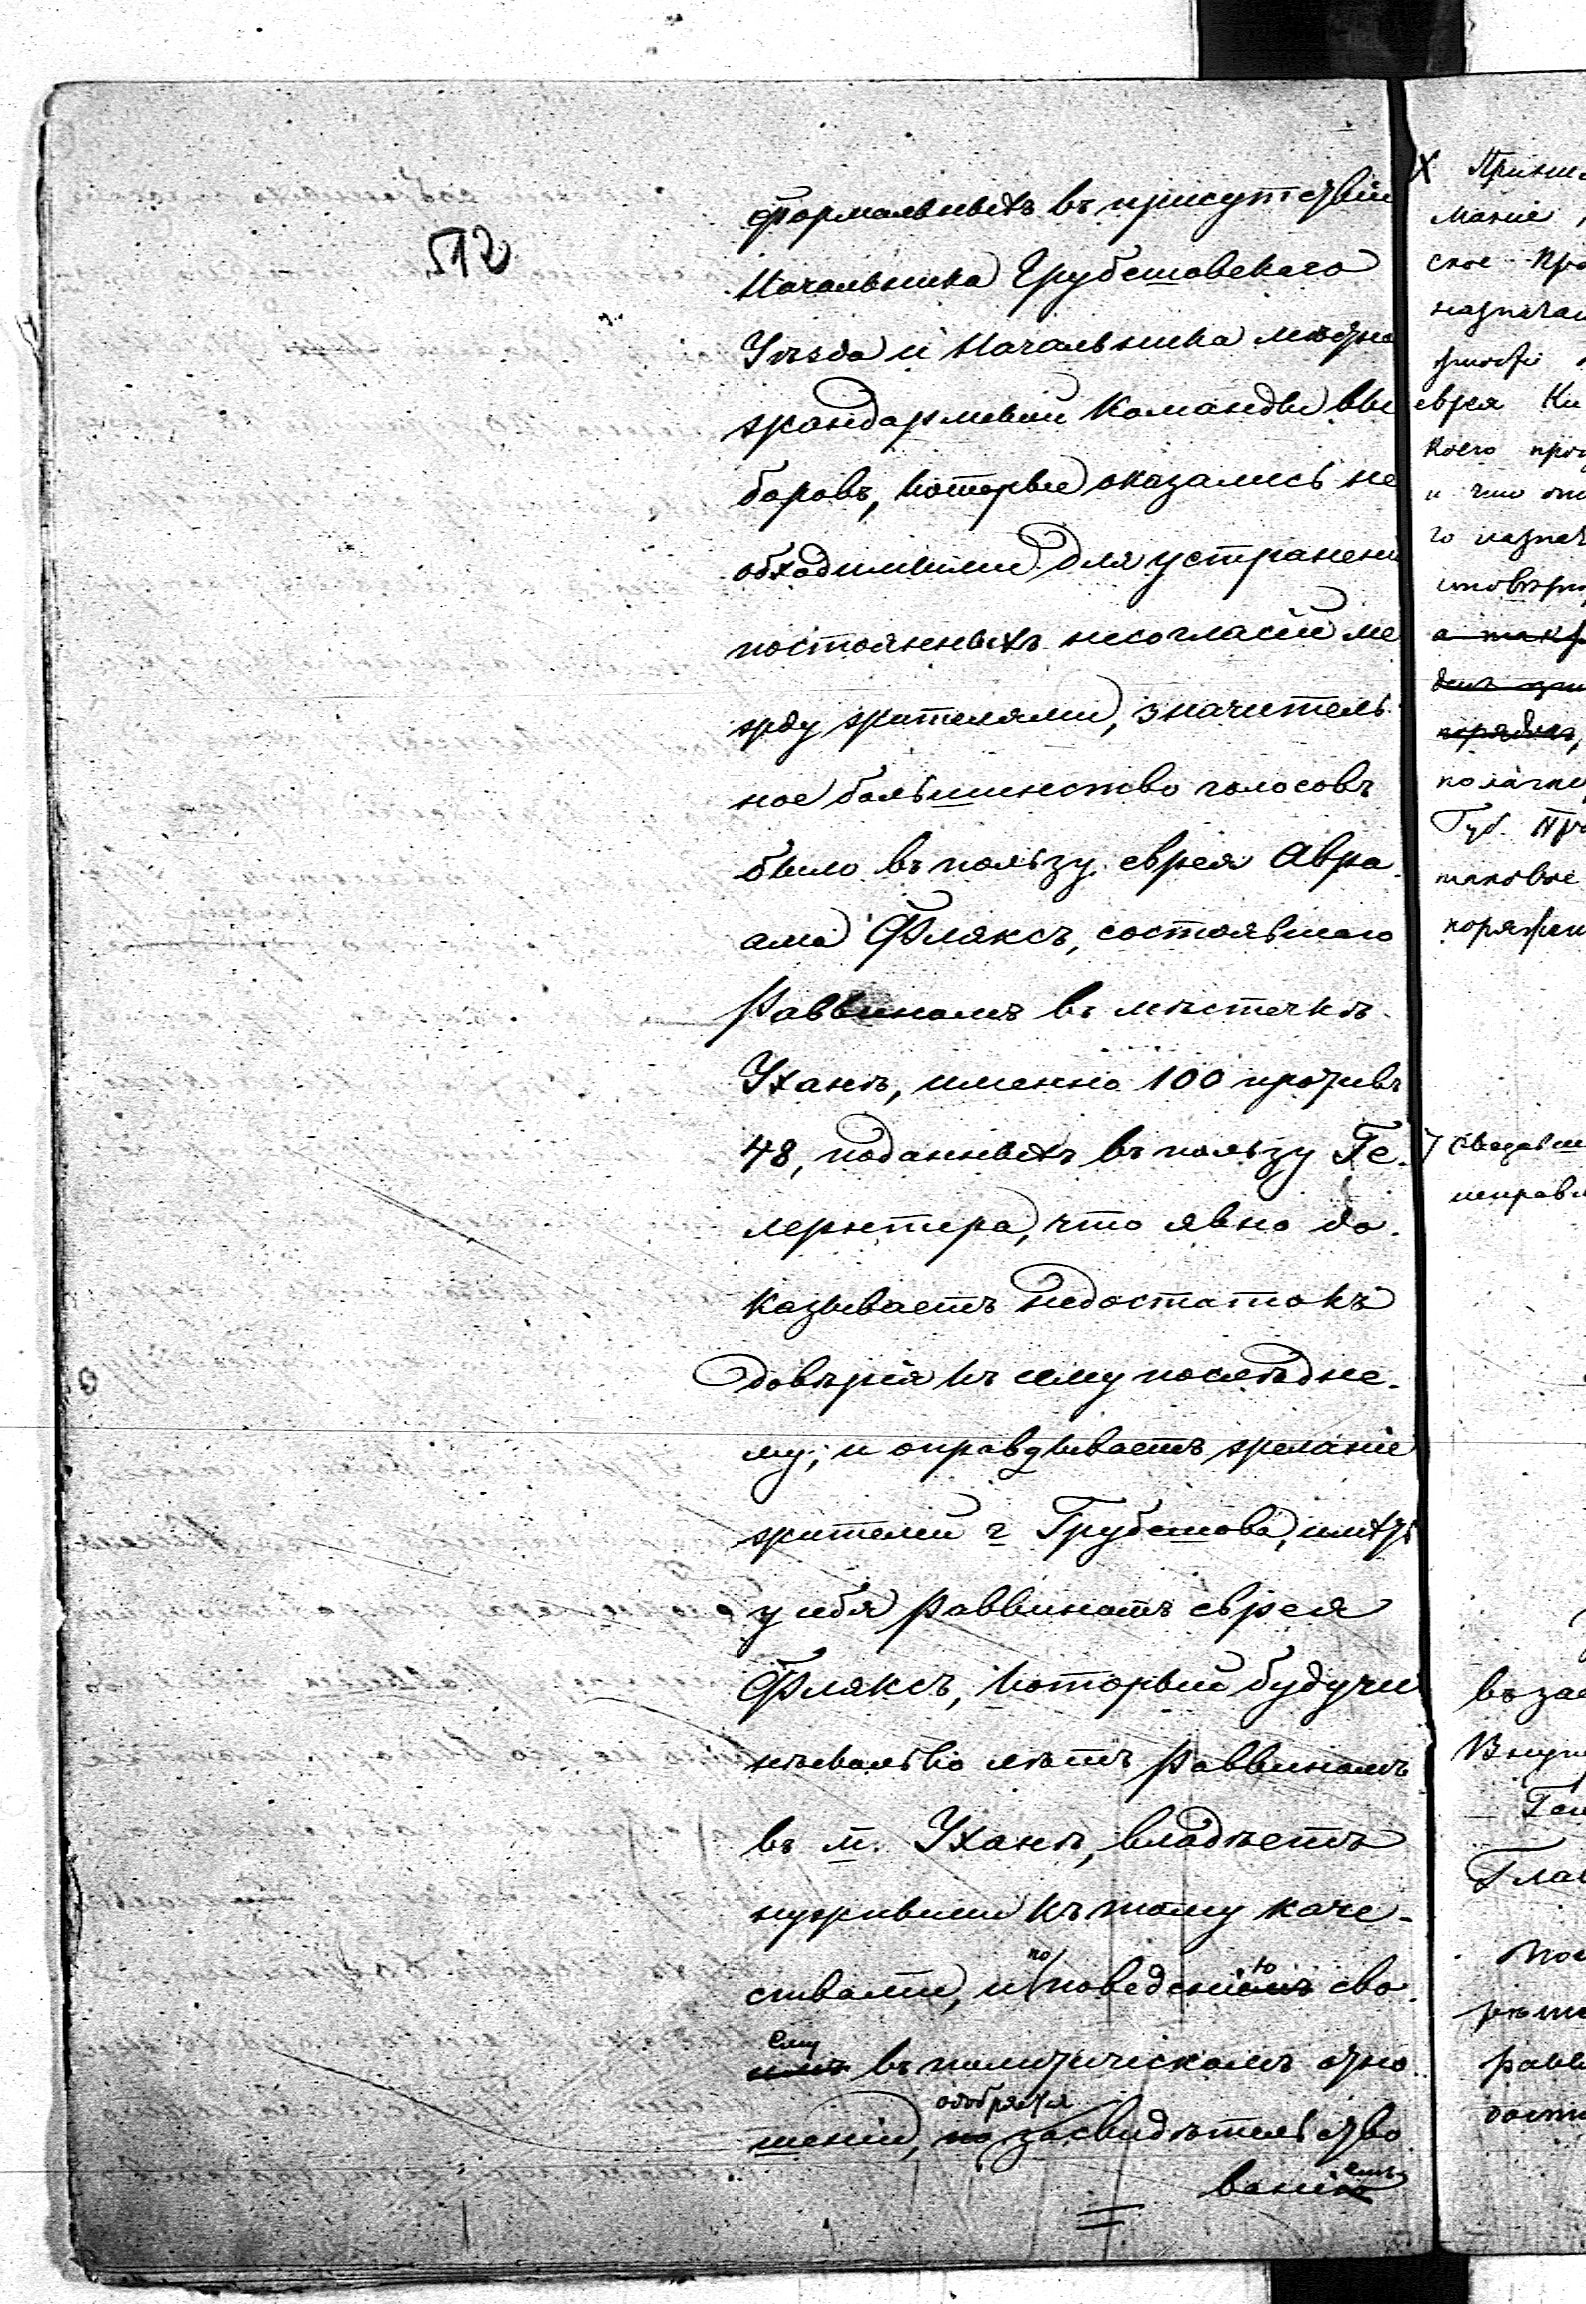 512
формальныхъ въ присутствіи
Начальника Грубешовскаго
Уѣзда и Начальника мѣстно
жандармской Команды вы
боровъ, которые оказались не
обходимыми для устранені
постоянныхъ несогласій ме
жду жителями, значитель
ное большинство голосовъ
было въ пользу еврея Авра
ама Фляксъ, состоявшаго
Раввиномъ въ мѣстечкѣ
Уханѣ, именно 100 противъ
48, поданныхъ въ пользу Ге.
лернтера, что явно до.
казываетъ недостатокъ
довѣрія къ сему послѣдне.
му; и оправдываетъ желаніе
жителей г Грубешова, имѣть
у себя Раввиномъ еврея
Фляксъ, который будучи
нѣсколько лѣтъ Раввиномъ
въ м. Уханѣ, владѣетъ
нужными къ тому каче-
ствами, и по поведенію сво
ему въ политическомъ отно
шеніи, одобряется
засвидѣтельство
ваніемъ
Х
маніе
ское Пра
назначан
еврея Ки
коего про
и что
го назнач
а также
порядка,
Губ. Пра
таковые
поряжен
Сведен
исправл
въ за
Внут
Глав
равв